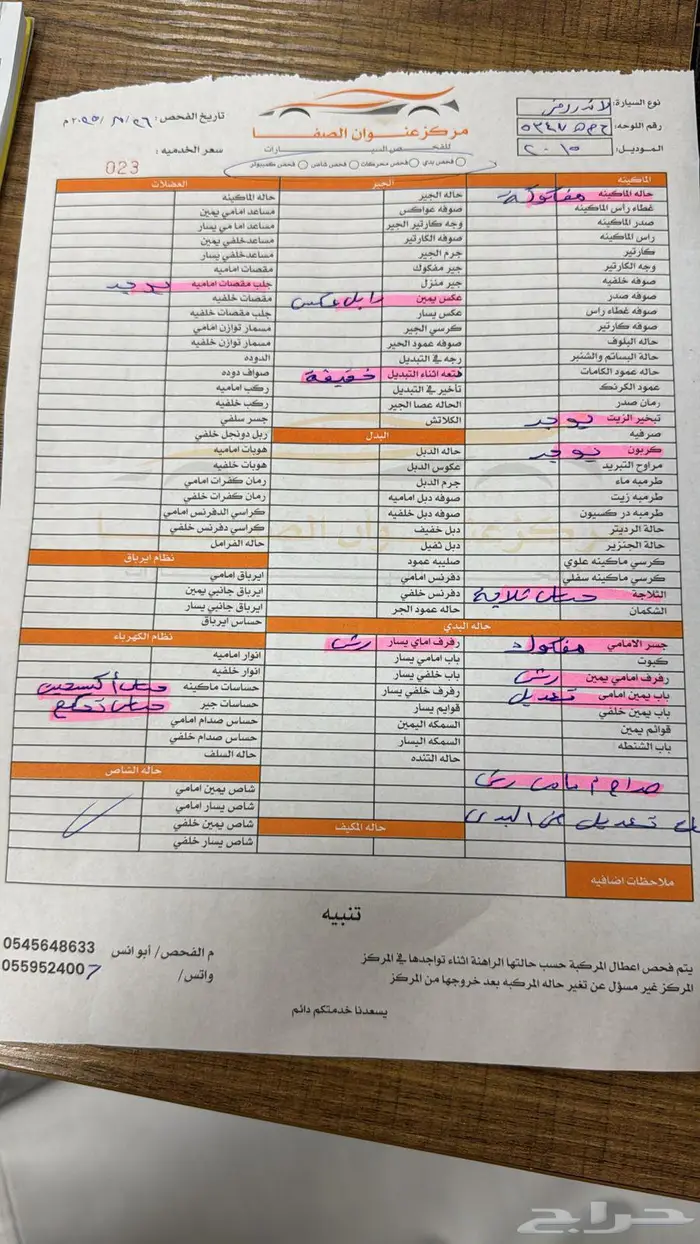 نوع السيارة: لاندروفر
رقم اللوحه:
الموديل: ٢٠١٥
مركز عنوان الصفا
للفحص السيارات
تاريخ الفحص:
سعر الخدميه:
023
فحص بدي فحص محركات فحص شاص فحص كمبيوتر
الماكينه
حاله الماكينه مفكوكة
غطاء رأس الماكينه
صدر الماكينه
راس الماكينه
كارتير
وجه الكارتير
صوفه خلفيه
صوفه صدر
صوفه غطاء راس
صوفه كارتير
حاله البلوف
حالة البساتم والشنبر
حاله عمود الكامات
عمود الكرنك
رمان صدر
تبخير الزيت يوجد
صرفيه
كربون يوجد
مراوح التبريد
طرمبه ماء
طرمبه زيت
طرمبه دركسيون
حالة الرديتر
حالة الجنزير
كرسي ماكينه علوي
كرسي ماكينه سفلي
الثلاجة حساس ثلاجة
الشكمان
الجير
حاله الجير
صوفه عواكس
وجه كارتير الجير
صوفه الكارتير
جرم الجير
جير مفكوك
جير منزل
عكس يمين دابل عكس
عكس يسار
كرسي الجير
صوفه عمود الجير
رجه في التبديل
فتعه اثناء التبديل خفيفة
تأخير في التبديل
الحاله عصا الجير
الكلاتش
البدل
حاله الدبل
عكوس الدبل
جرم الدبل
صوفه دبل اماميه
صوفه دبل خلفيه
دبل خفيف
دبل ثقيل
صليبه عمود
دفرنس امامي
دفرنس خلفي
حاله عمود الجر
العضلات
حاله الماكينه
مساعد امامي يمين
مساعد امامي يسار
مساعد خلفي يمين
مساعد خلفي يسار
مقصات اماميه
جلب مقصات اماميه يوجد
مقصات خلفيه
جلب مقصات خلفيه
مسمار توازن امامي
مسمار توازن خلفي
الدوده
صواف دوده
ركب اماميه
ركب خلفيه
جسر سلفي
ربل دونجل خلفي
هوبات اماميه
هوبات خلفيه
رمان كفرات امامي
رمان كفرات خلفي
كراسي الدفرنس امامي
كراسي دفرنس خلفي
حاله الفرامل
نظام ايرباق
ايرباق امامي
ايرباق جانبي يمين
ايرباق جانبي يسار
حساس ايرباق
نظام الكهرباء
انوار اماميه
انوار خلفيه
حساسات ماكينه حساس أكسجين
حساسات جير
حساس صدام امامي
حساس صدام خلفي
حاله السلف
حاله البدي
جسر الامامي مفكوك
كبوت
رفرف امامي يمين رش
باب يمين امامى تعديل
باب يمين خلفي
قوائم يمين
باب الشنطه
رفرف اماي يسار رش
باب امامي يسار
باب خلفي يسار
رفرف خلفي يسار
قوايم يسار
السمكه اليمين
السمكه اليسار
حاله التنده
صدام امامي رش
تعديل من البدي
حاله الشاص
شاص يمين امامي
شاص يسار امامي
شاص يمين خلفي
شاص يسار خلفي
حاله المكيف
ملاحظات اضافيه
تنبيه
يتم فحص اعطال المركبة حسب حالتها الراهنة اثناء تواجدها في المركز
المركز غير مسؤل عن تغير حاله المركبه بعد خروجها من المركز
يسعدنا خدمتكم دائم
م الفحص/ أبو انس 0545648633
واتس/ 0559524007
حراج